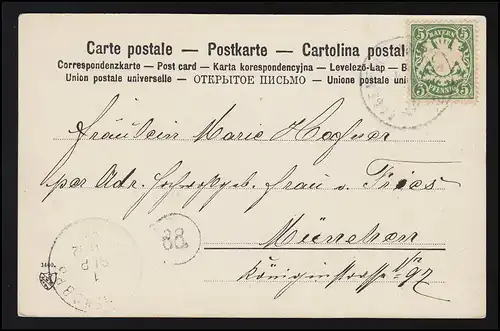 Carte postale – Postkarte – Cartolina postal
Correspondenzkarte – Post card – Karta korespondencyjna – Levelező-Lap – B
Union postale universelle – ОТКРЫТОЕ ПИСЬМО – Unione postale uni
5 BAYERN 5
5 PFENNIG 5
Fräulein Marie Hafner
per Adr. Hochwohlgeb. Frau v. Fries
München
Königinstrasse 97
88